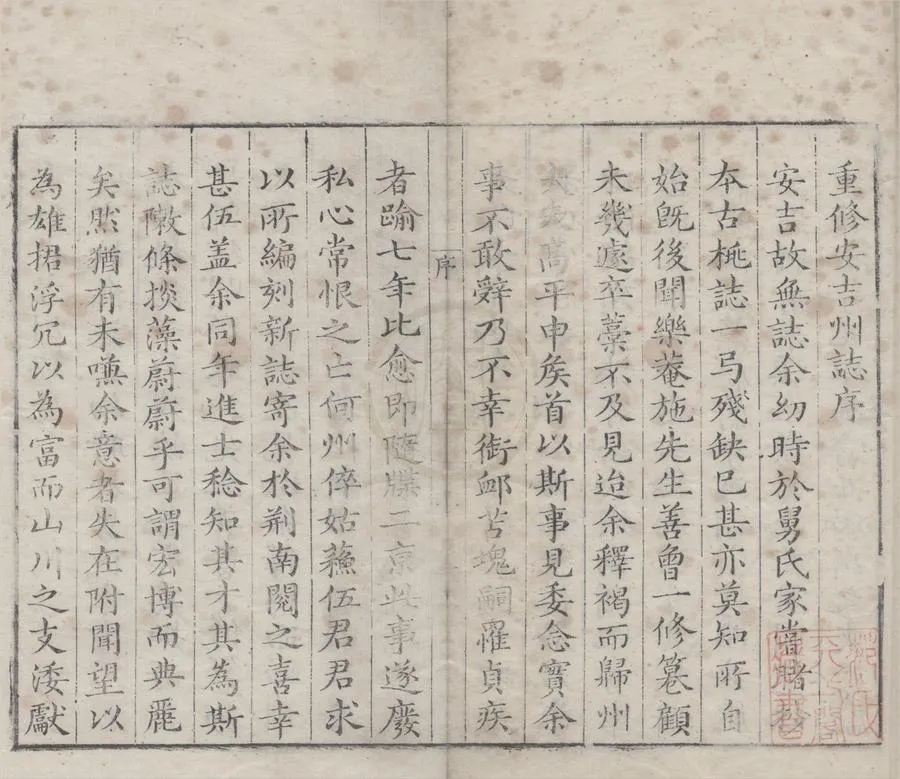 重修安吉州誌序
安吉故無誌余幼時於舅氏家嘗睹
本古桃誌一弓殘缺已甚亦莫知所自
始旣後聞樂菴施先生善曾一修纂顧
未幾遽卒藁不及見迨余釋褐而歸州
大夫高平申矦首以斯事見委念實余
事不敢辤乃不幸銜卹苫塊嗣罹貞疾
序
者踰七年比愈即隨牒二京此事遂廢
私心常恨之亡何州倅姑蘓伍君君求
以所編刻新誌寄余於荆南閱之喜幸
甚伍盖余同年進士稔知其才其為斯
誌敶條掞藻蔚蔚乎可謂宏博而典麗
矣然猶有未嗛余意者失在附聞望以
為雄捃浮冗以為富而山川之支倭獻